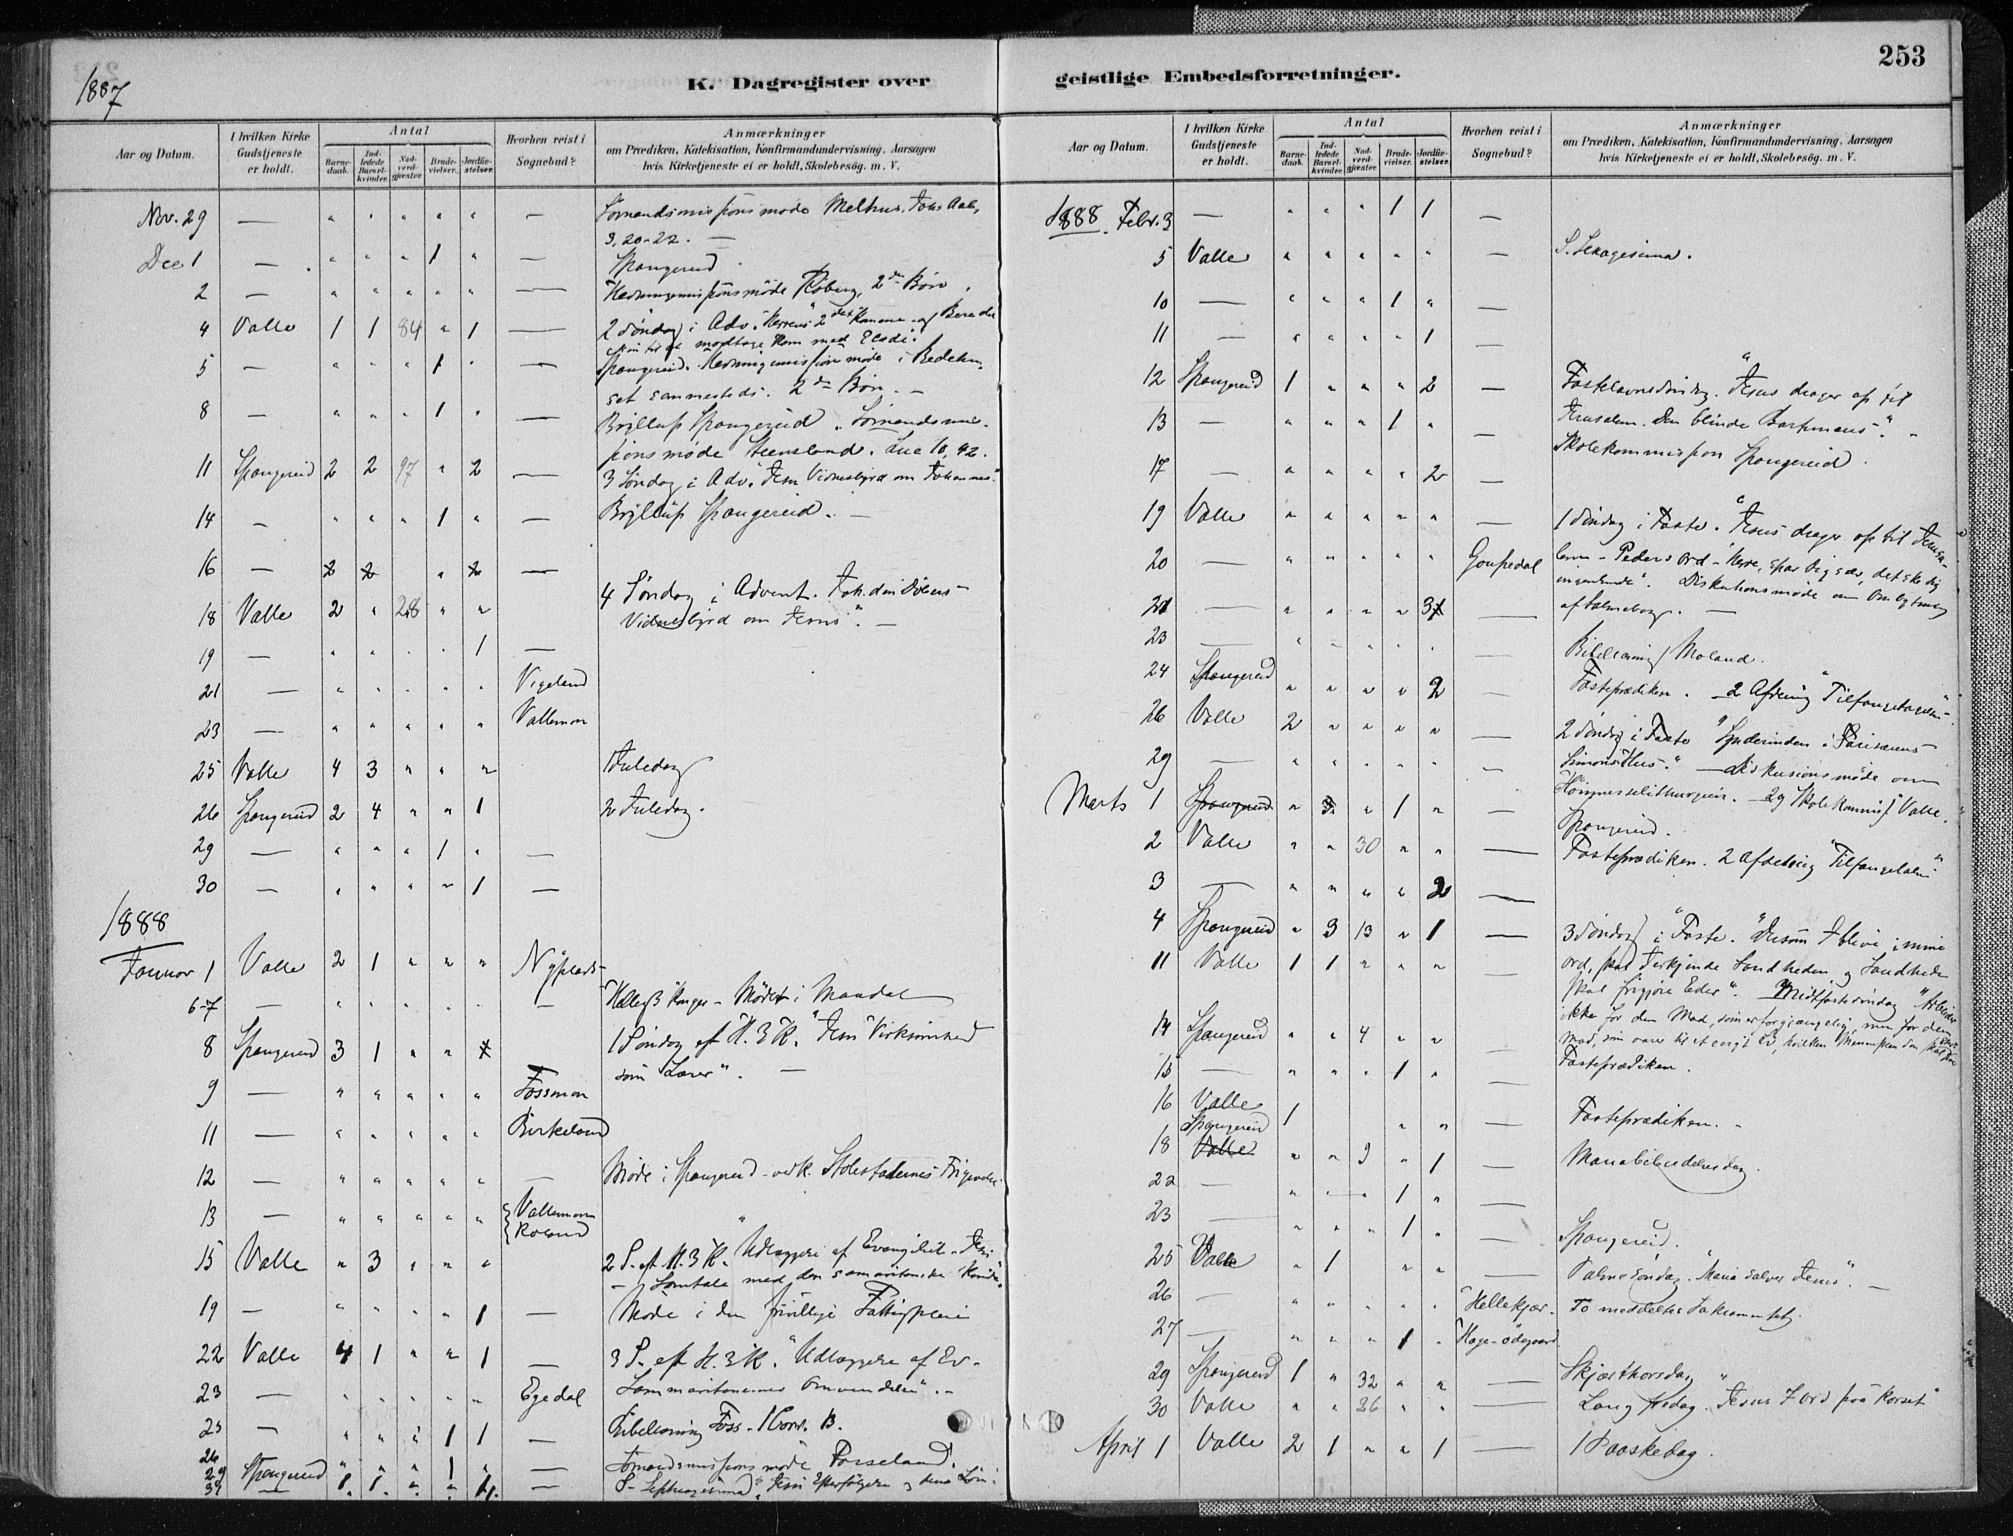 1887
K. Dagregister over geistlige Embedsforretninger.
253
Aar og Datum.
I hvilken Kirke Gudstjeneste er holdt.
Antal
Barne-daab.
Ind-ledede Barsel-kvinder.
Nad-verd-gjæster.
Brude-vielser.
Jordfæ-stelser.
Hvorhen reist i Sognebud?
Anmærkninger
om Prædiken, Katekisation, Konfirmandundervisning, Aarsagen
hvis Kirketjeneste ei er holdt, Skolebesøg. m. V.
Nov. 29 — " " " " " — Sømandsmissionsmøde Melhus.
3, 20-22. —
Dec 1 — " " " 1 " — Spangereid
2 — " " " " " — Hedningemissionsmøde 2den Bøn.
4 Valle 1 1 84 " 1 — 2 Søndag i Adv.
5 — " " " 1 " — Spangereid. Hedningemissionsmøde i Bedehu-
set sammesteds. 2den Bøn. —
8 — " " " 1 " — Bryllup Spangereid. Sømandsmis-
sionsmøde Steensland. Luc 10, 42.
11 Spangereid 2 2 97 " 2 — 3 Søndag i Adv. "Jesu Vidnesbyrd om Johannes"
14 — " " " 1 " — Bryllup Spangereid. —
16 — 2 2 " 2 —
18 Valle 2 " 28 " " 4 Søndag i Advent. Joh. den Døbers
Vidnesbyrd om Jesus". —
19 — " " " " 1 —
21 — " " " " " Vigeland
23 — " " " " " Vallemon
25 Valle 4 3 " " " 1 Juledag
26 Spangereid 2 4 " " 1 2 Juledag.
29 — " " " 1 " —
30 — " " " " 1 —
1888
Januar 1 Valle 2 1 " " " Nyplads
6-7 — " " " " " — Hellig 3 Konger - Mødet i Mandal
8 Spangereid 3 1 " " 1 Søndag eft H. 3 K. "Jesu Virksomhed
som Lærer". —
9 — " " " " " Fossmon
11 — " " " " " Birkeland
12 — " " " " " — Møde i Spangereid
13 — " " " " " Vallemon
Roland
15 Valle " 3 " " " 2 S. eft H. 3 K. Udlæggelse af Evangeliet - Jesu
— Samtale med den samaritanske Kvinde"
19 — " " " " 1 — Møde i den frivillige Fattigpleie
22 Valle 4 1 " " 1 — 3 S. eft H. 3 K. "Udlæggelse af Ev-
Sammaritanernes Omvendelse". —
23 — " " " " " Egedal
25 — " " " 1 1 — Bibellæsning Foss. 1 Corr. 13.
26 " " " 1 — Sømandsmissionsmøde
29 Spangereid 1 1 " " 1 — S. Septuagesima
31
Aar og Datum.
I hvilken Kirke Gudstjeneste er holdt.
Antal
Barne-daab.
Ind-ledede Barsel-kvinder.
Nad-verd-gjæster.
Brude-vielser.
Jordfæ-stelser.
Hvorhen reist i Sognebud?
Anmærkninger
om Prædiken, Katekisation, Konfirmandundervisning, Aarsagen
hvis Kirketjeneste ei er holdt, Skolebesøg. m. V.
1888 Febr. 3 — " " " 1 1 —
5 Valle " " " " " — S. Sexagesima.
10 — " " " 1 " —
11 — " " " " 1 —
12 Spangereid 1 " " " 2 — Fastelavnssøndag. "Jesus drager op til
13 — " " " 1 " — Jerusalem. Den blinde Bartimæus". —
Skolekommission Spangereid.
17 — " " " " 2 —
19 Valle " " " " " — 1 Søndag i Faste. "Jesus drager op til Jerusa-
20 — " " " " " lem - Peders Ord - Herre, spar Dig selv, det ske Dig
ingenlunde". Diskutionsmøde om Ombytning
21 — " " " " 3 — af Salmebog. —
23 — " " " " " — Bibellæsning Moland.
24 Spangereid " " " " 2 — Fasteprædiken. 2 Afdeling
26 Valle 2 " " " " — 2 Søndag i Faste "Synderinden i Farisæeren
29 — " " " " " — Simons Hus." — Diskusionsmøde om
Marts 1 Spangereid " " " 1 " 29 Skolekommis. Valle.
Spangereid.
2 Valle " " 30 " " — Fasteprædiken. 2 Afdeling
3 — " " " " 2 —
4 Spangereid " 3 13 " 1 — 3 Søndag i Faste. "Dersom I blive i mine
11 Valle 1 1 " " " — Ord, skal I erkjende Sandheden og Sandheden
skal frigjøre Eder". Midfastesøndag "Arbeider
ikke for den Mad, som er forgjængelig, men for den
14 Spangereid " " 4 " " — Mad, som varer til et evigt Liv, hvilken Menneskens Søn skal give
15 — " " " 1 " — Fasteprædiken.
16 Valle 1 " " — Fasteprædiken. —
Spangereid
18 Valle " " 9 " 1 — Mariæ Bebudelsesdag
22 — " " " 1 " —
23 — " " " 1 " — Spangereid.
25 Valle " 1 " " — Palmesøndag. "Maria salver Jesus". —
26 — " " " " " Hellekjær. To meddeltes Sakramentet.
27 — " " " 1 " Hage-Ødegaard
29 Spangereid 1 " 32 " " — Skjærthorsdag
30 Valle " " 26 " " — Langfredag. "Jesus 7 Ord paa Korset"
April 1 Valle 2 1 " " 1 — 1 Paaskedag.